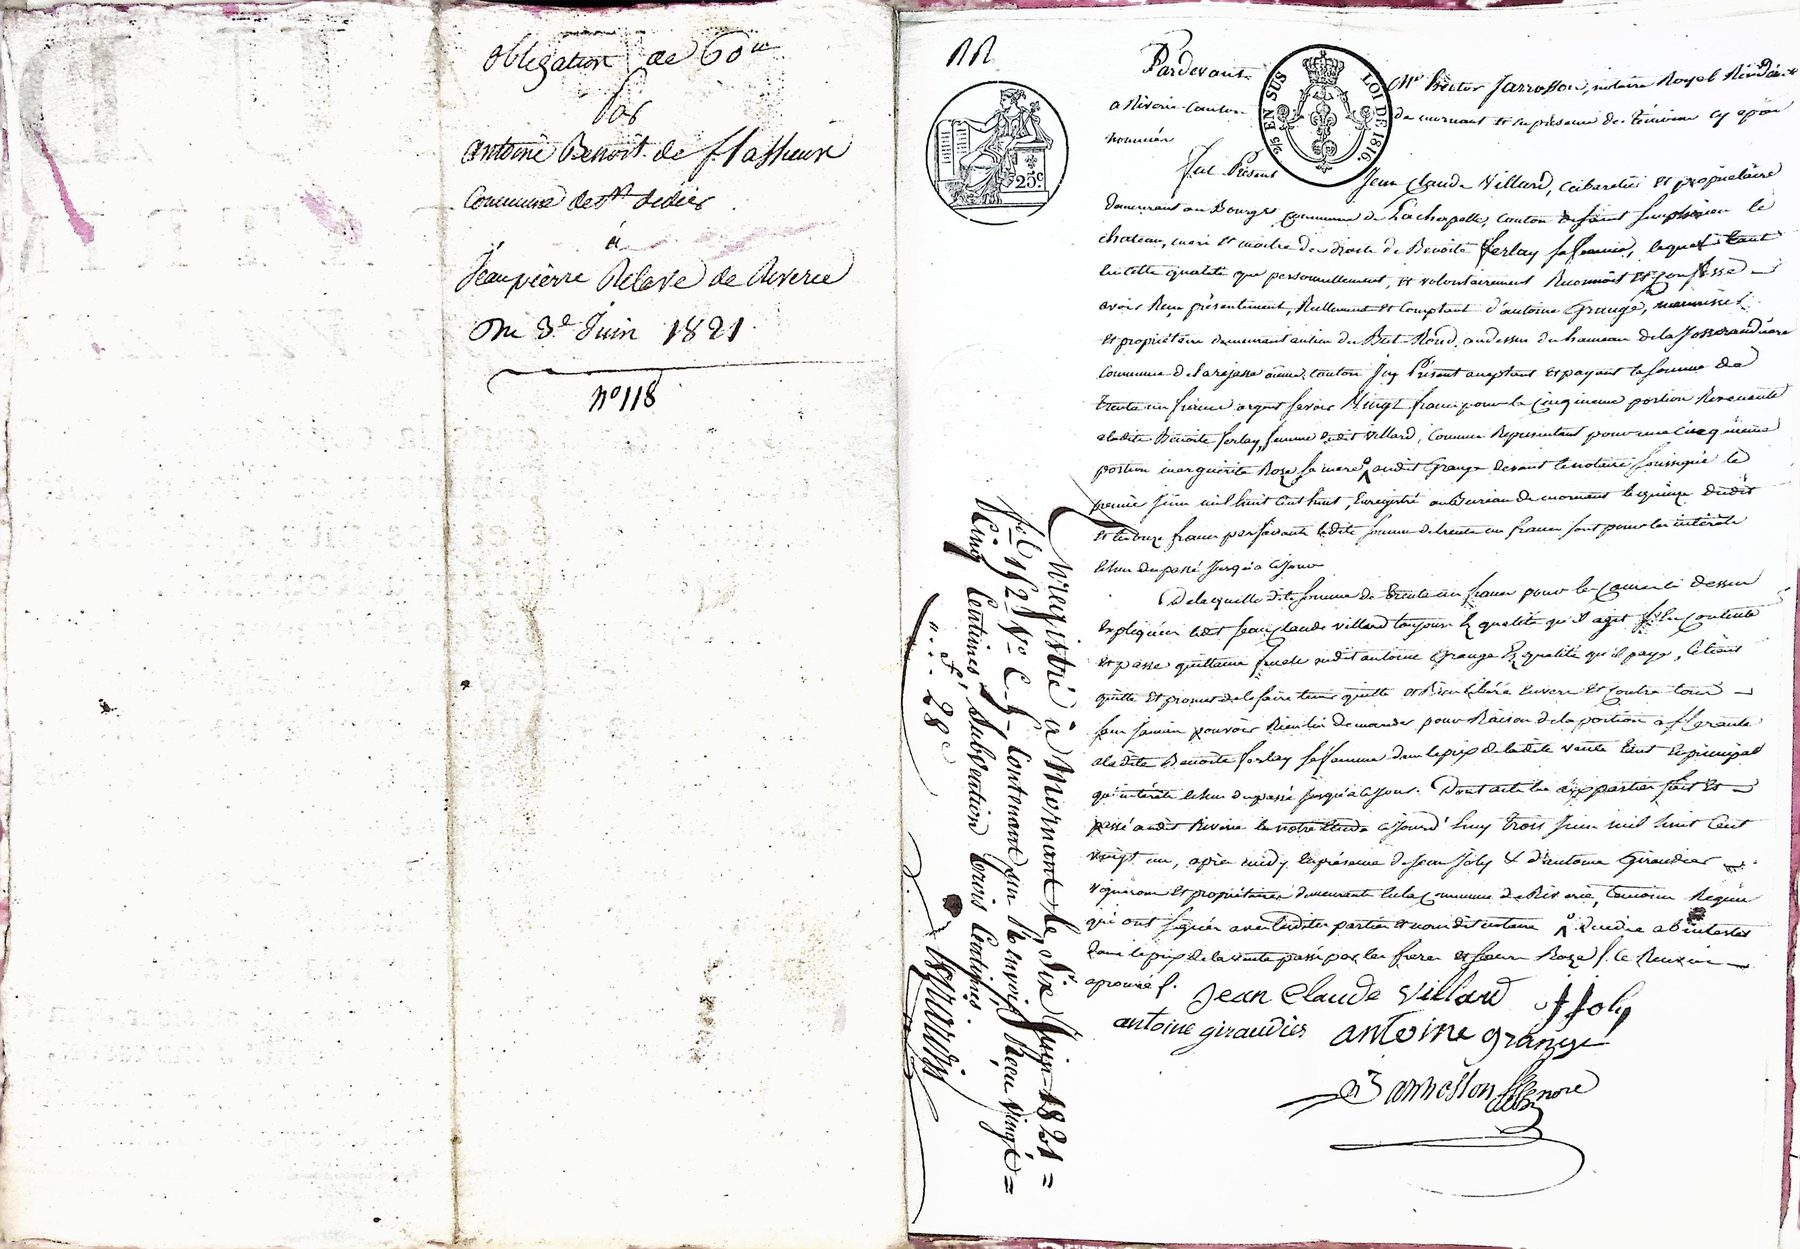 obligation de 60#
par
antoine Benoit de flassieux
Commune de St didier
à
Jean pierre Relave de Riverie
Du 3e Juin 1821
No 118
25 c.
25 EN SUS LOI DE 1816.
Pardevant Me hector Jarrosson, notaire Royal Résidant
a Riverie canton de mornant et en présence des témoins cy après
nommés
fut Présent Jean Claude Villard, cabaretier et propriétaire
demeurant au Bourg commune de Lachapelle, canton de saint simphorien le
chateau, mari et maitre des droits de Benoite ferlay sa femme, lequel tant
en cette qualité que personnellement, et volontairement Reconnoit et confesse
avoir Reçu présentement, Réellement et comptant d'antoine Grange,
et propriétaire demeurant au lieu du Bat-Rond, audessus du hameau de la Josserandière
commune de Larajasse même canton icy Présent acceptant et payant la somme de
trente un francs argent savoir Vingt francs pour la cinquième portion Revenante
a ladite Benoite ferlay, femme dudit Villard, comme Représentant pour une cinquième
portion marguerite Roze sa mère audit Grange devant le notaire soussigné le
premier juin mil huit cent huit, Enregistré au Bureau de mornant le quinze dudit
et les onze francs parfaisant ladite somme de trente un francs sont pour les intérêts
échus du passé jusqu'à ce jour
De laquelle dite somme de trente un francs pour les causes ci dessus
expliquées ledit Jean Claude Villard toujours en qualité qu'il agit se contente
et passe quittance finale audit antoine Grange en qualité qu'il paye, le tient
quitte et promet de le faire tenir quitte et Bien libéré envers et contre tous
sans jamais pouvoir Rien lui demander pour Raison de la portion afférante
a ladite Benoite ferlay sa femme dans le prix de ladite vente tant en principal
qu'intérêts échus du passé jusqu'à ce jour. Dont acte les parties fait et
passé audit Riverie en notre étude ce jourd'huy trois juin mil huit cent
vingt un, après midy en présence de Jean Joly & d'antoine Giraudier
vignerons et propriétaires demeurants en la commune de Riverie, témoins Requis
qui ont signés avec lesdites parties et nous dit notaire abintestat
dans le prix de la vente passé par les frères et sœurs Roze f. le Renvoi
aprouvé f.
Jean Claude Villard J Joly
antoine giraudier antoine grange
Jarrosson Nore
Enregistré à Mornant le six Juin 1821 =
fo 152 Vo C. 5 Contenant un Renvoi, Reçu vingt =
Cinq Centimes, Subvention trois Centimes
" . . . f 28 c